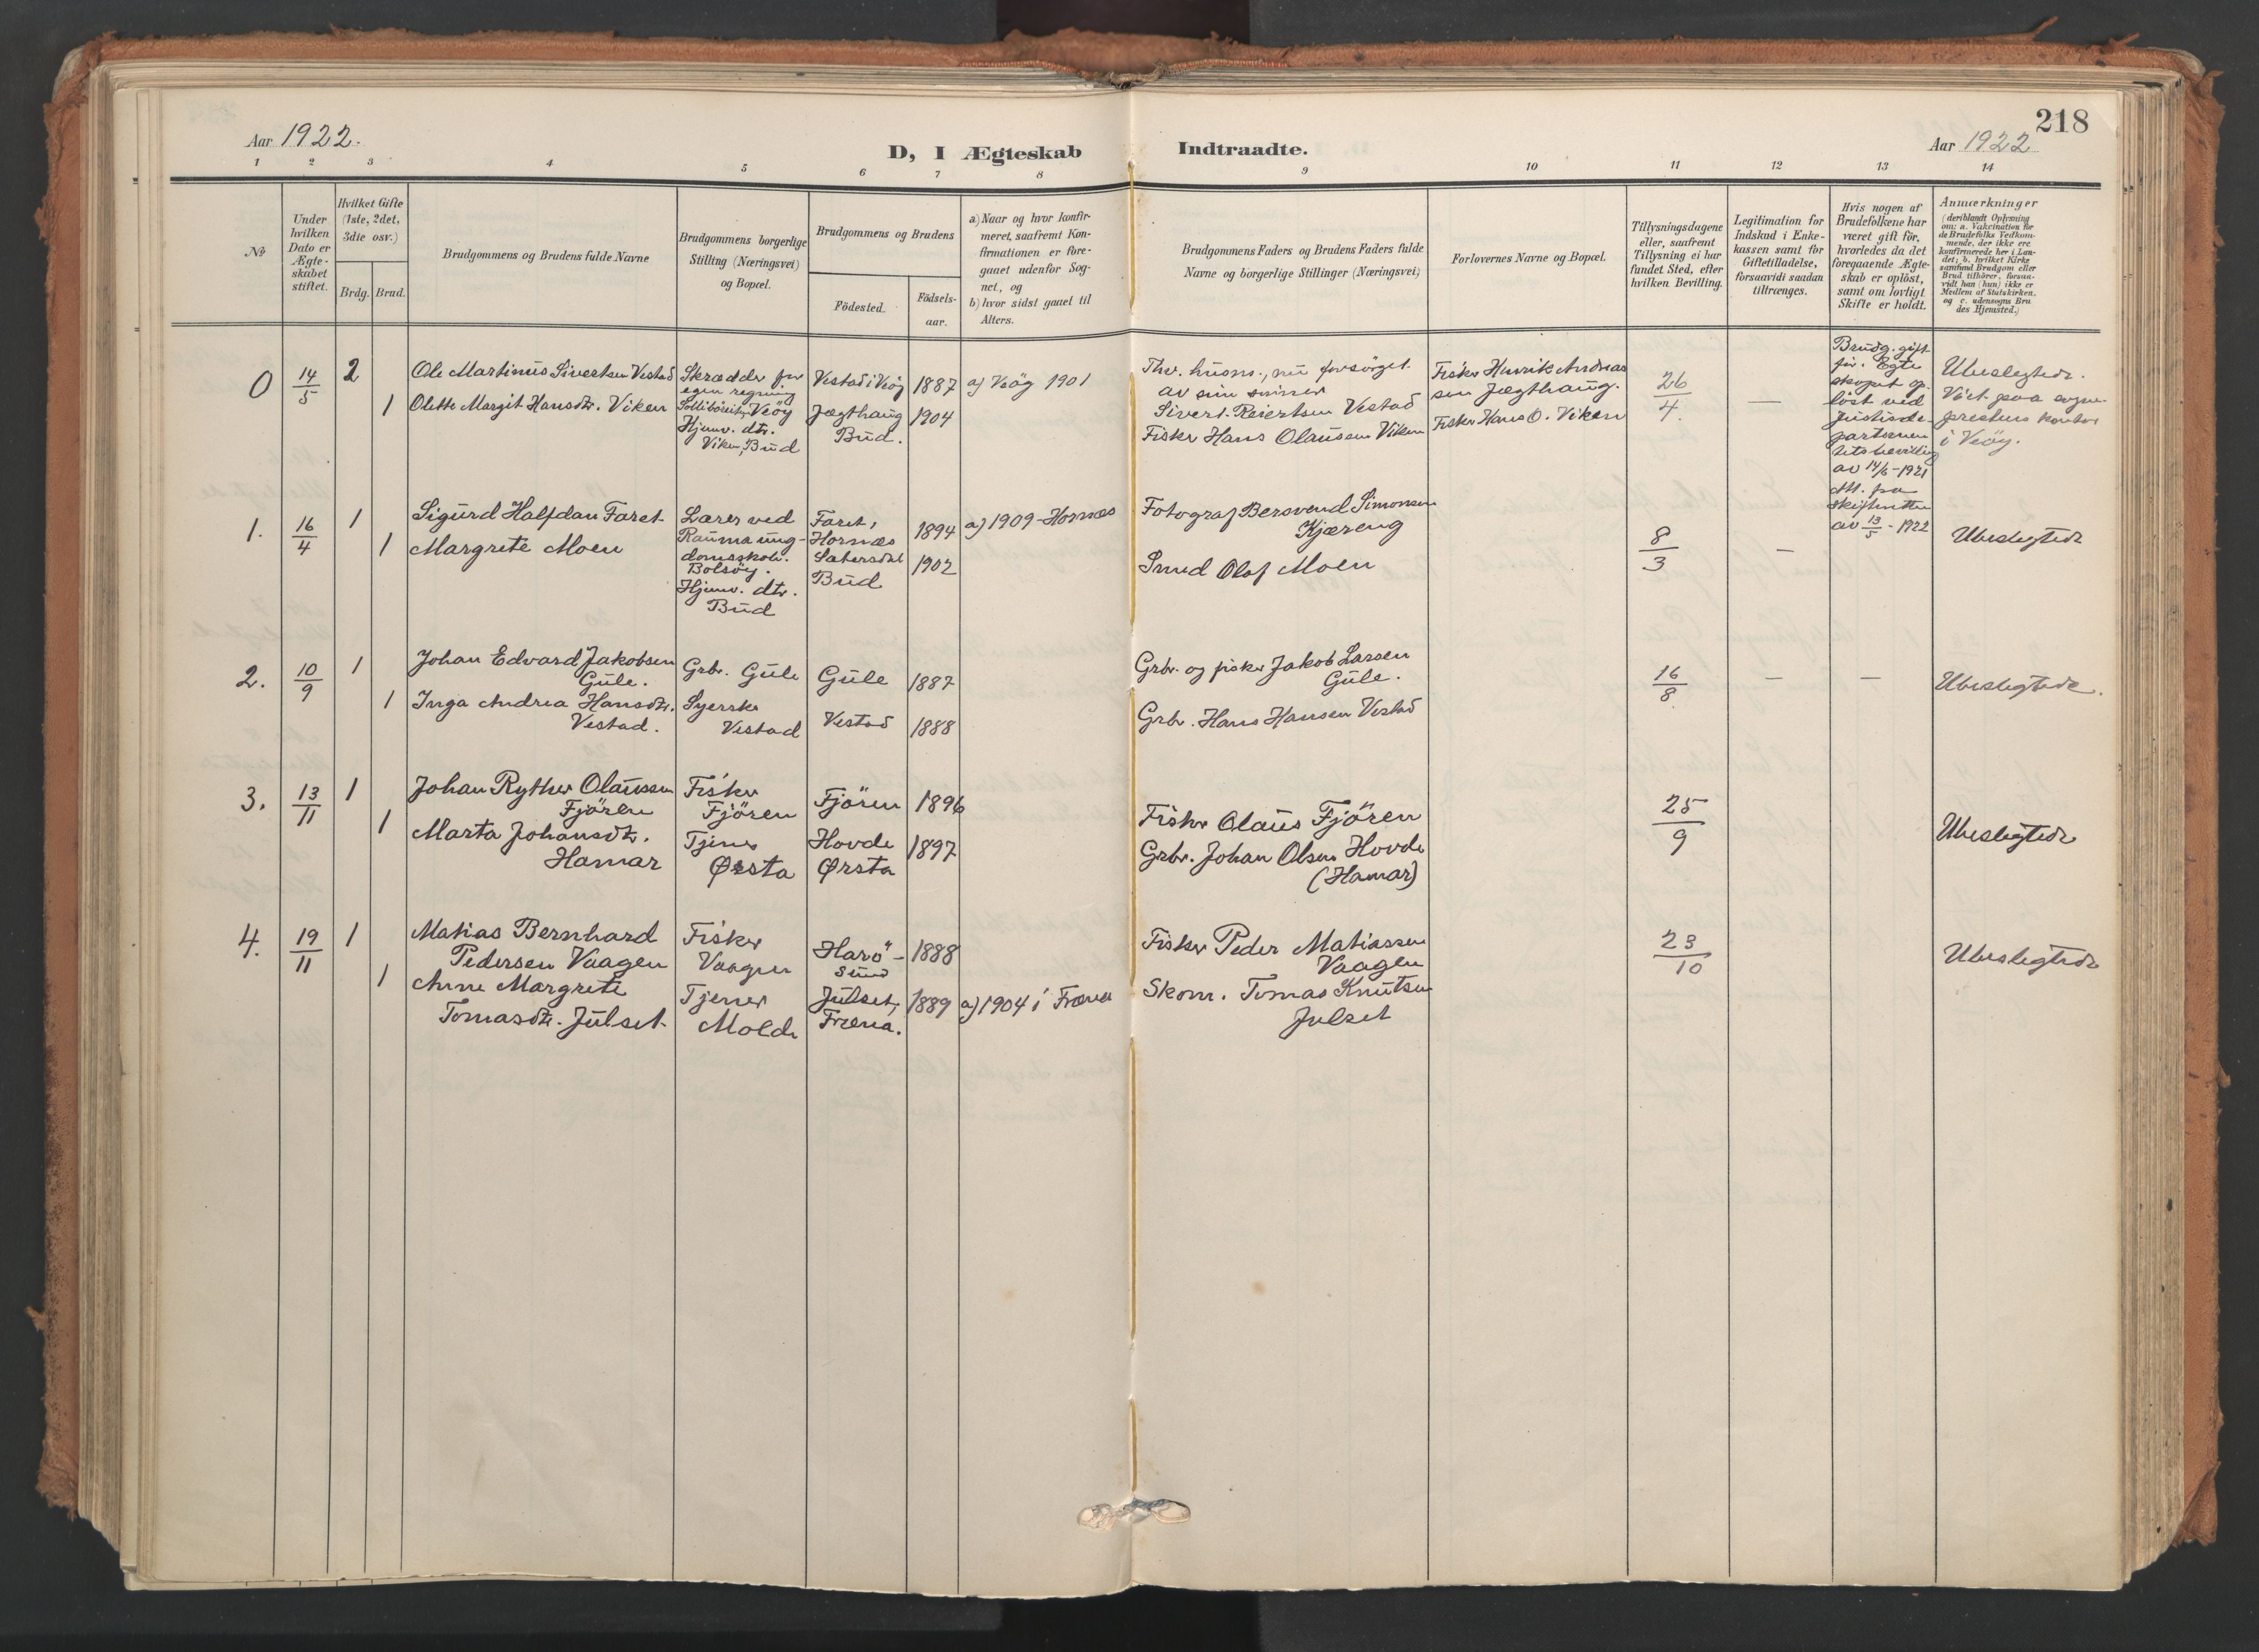 218
Aar 1922.
D, I Ægteskab Indtraadte.
Aar 1922
1 2 3 4 5 6 7 8 9 10 11 12 13 14
No
Under
hvilken
Dato er
Ægte-
skabet
stiftet.
Hvilket Gifte
(1ste, 2det,
3die osv.)
Brdg. Brud.
Brudgommens og Brudens fulde Navne
Brudgommens borgerlige
Stilling (Næringsvei)
og Bopæl.
Brudgommens og Brudens
Födested.
Födsels-
aar.
a) Naar og hvor konfir-
meret, saafremt Kon-
firmationen er fore-
gaaet udenfor Sog-
net, og
b) hvor sidst gaaet til
Alters.
Brudgommens Faders og Brudens Faders fulde
Navne og borgerlige Stillinger (Næringsvei)
Forlovernes Navne og Bopæl.
Tillysningsdagene
eller, saafremt
Tillysning ei har
fundet Sted, efter
hvilken Bevilling.
Legitimation for
Indskud i Enke-
kassen samt for
Giftetilladelse,
forsaavidt saadan
tiltrænges.
Hvis nogen af
Brudefolkene har
været gift för,
hvorledes da det
foregaaende Ægte-
skab er oplöst,
samt om lovligt
Skifte er holdt.
Anmærkninger
(deriblandt Oplysning
om: a. Vakcination for
de Brudefolks Vedkom-
mende, der ikke ere
konfirmerede her i Lan-
det; b. hvilket Kirke
samfund Brudgom eller
Brud tilhörer, forsaa-
vidt han (hun) ikke er
Medlem af Statskirken,
og c. udensogns Bru
des Hjemsted.)
0
14/5
2
1
Ole Martinus Sivertsen Vestad
Olette Margit Hansdtr. Viken
Skrædder for
egen regning
Veöy
Hjemv. dtr.
Viken, Bud
Vestad i Veöy
Jægthaug
Bud.
1887
1904
a) Veöy 1901
Thv. husm., nu forsörget
av sine sönner
Sivert Reiertsen Vestad
Fisker Hans Olausen Viken
Fisker Henrik Andreas
sen Jægthaug.
Fisker Hans O. Viken
26/4.
—
Brudg. gift
för. Egte
skapet op-
löst ved
Justisde-
partemen
tets bevilling
av 14/6-1921
Att. fra
skifteretten
av 13/5-1922
Ubeslegtede.
Viet paa sogne-
prestens kontor
i Veöy.
1.
16/4
1
1
Sigurd Halfdan Faret
Margrete Moen
Lærer ved
Rauma ung-
domsskole.
Bolsöy.
Hjemv. dtr.
Bud
Faret,
Hornæs
Sætersdal
Bud
1894
1902
a) 1909 - Hornæs
Fotograf Bersvend Simonsen
Kjæreng
Smed Olaf Moen
8/3
—
Ubeslegtede
2.
10/9
1
1
Johan Edvard Jakobsen
Gule.
Inga Andrea Hansdtr.
Vestad.
Grbr. Gule
Syerske
Vestad
Gule
Vestad
1887
1888
Grbr. og fisker Jakob Larsen
Gule.
Grbr. Hans Hansen Vestad
16/8
—
—
Ubeslegtede.
3.
13/11
1
1
Johan Ryther Olaussen
Fjören
Marta Johansdtr.
Hamar
Fisker
Fjören
Tjener
Ørsta
Fjören
Hovde
Ørsta
1896
1897
Fisker Olaus Fjören
Grbr. Johan Olsen Hovde
(Hamar)
25/9
Ubeslegtede
4.
19/11
1
1
Matias Bernhard
Pedersen Vaagen
Anne Margrete
Tomasdtr. Julset
Fisker
Vaagen
Tjener
Molde
Harö-
sund
Julset,
Fræna.
1888
1889
a) 1904 i Fræna
Fisker Peder Matiassen
Vaagen
Skom. Tomas Knutsen
Julset
23/10
Ubeslegtede